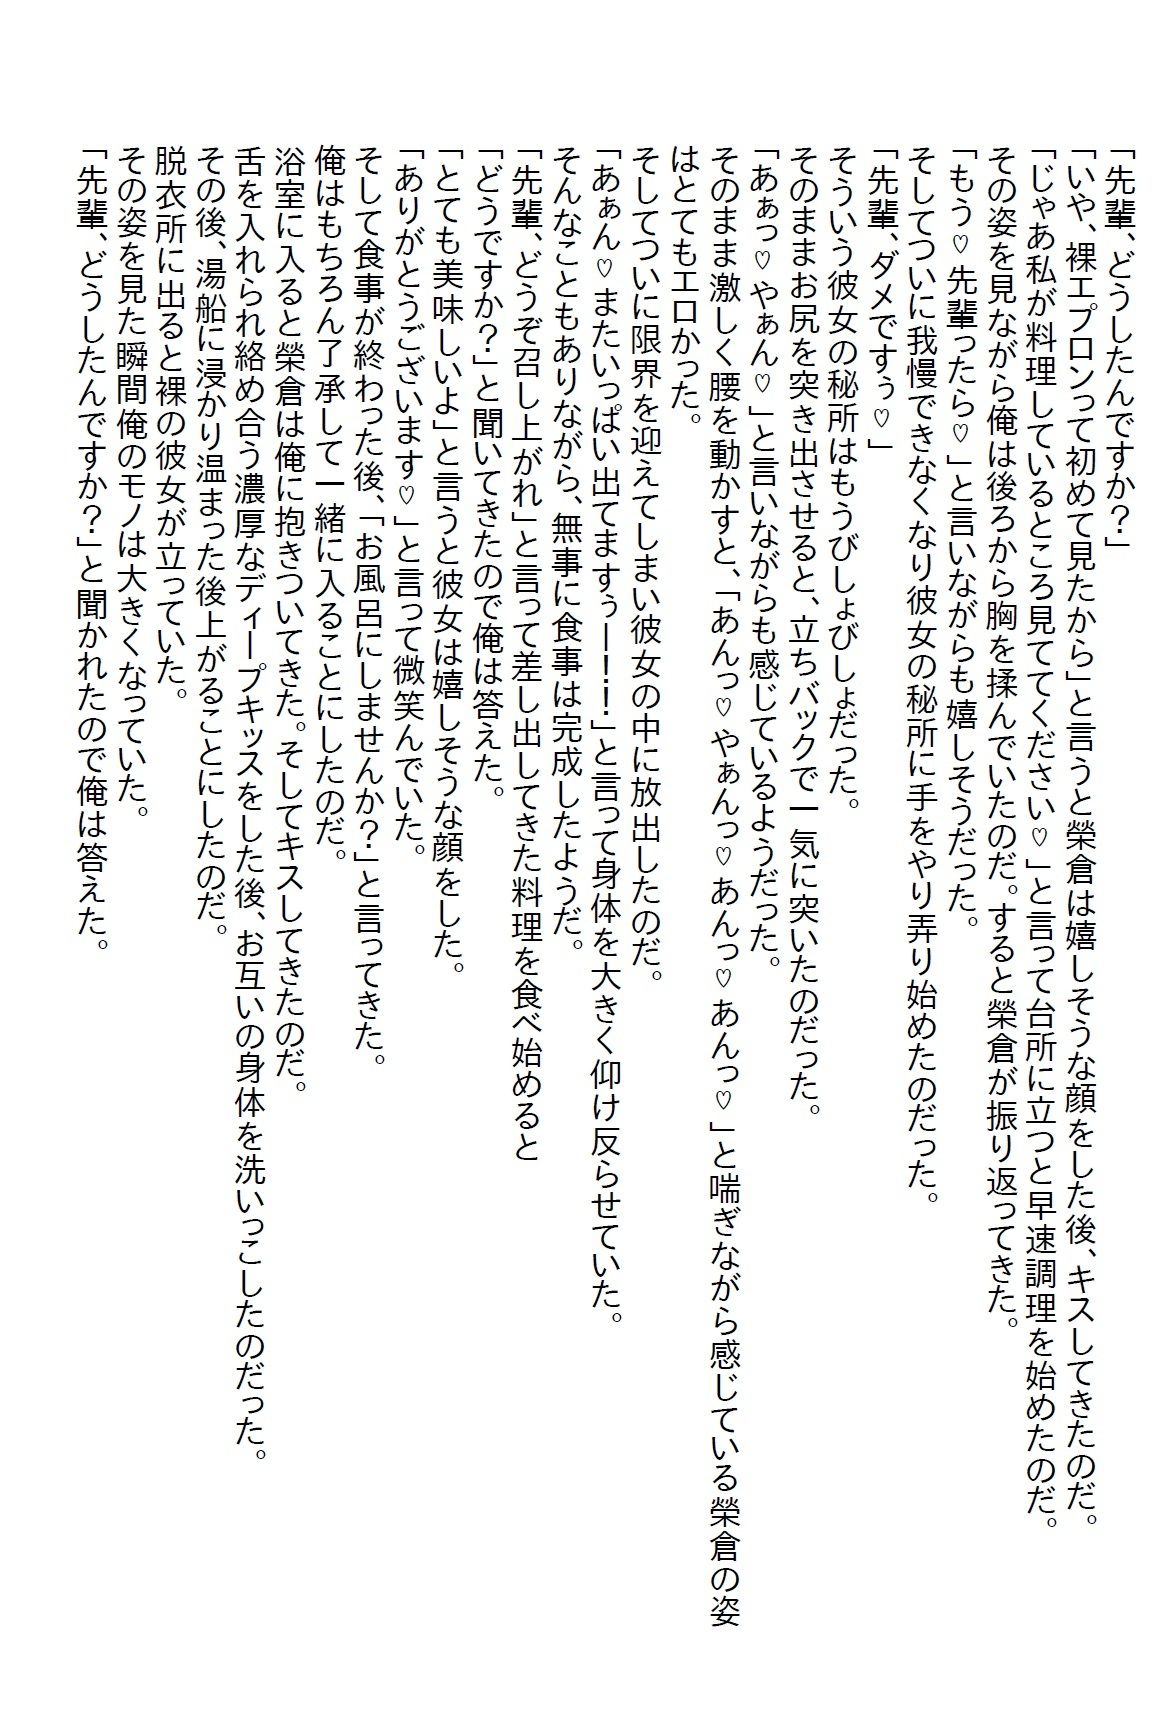 「先輩、どうしたんですか?」
「いや、裸エプロンって初めて見たから」と言うと榮倉は嬉しそうな顔をした後、キスしてきたのだ。
「じゃあ私が料理しているところ見ててください♡」と言って台所に立つと早速調理を始めたのだ。
その姿を見ながら俺は後ろから胸を揉んでいたのだ。すると榮倉が振り返ってきた。
「もう♡先輩ったら♡」と言いながらも嬉しそうだった。
そしてついに我慢できなくなり彼女の秘所に手をやり弄り始めたのだった。
「先輩、ダメですぅ♡」
そういう彼女の秘所はもうびしょびしょだった。
そのままお尻を突き出させると、立ちバックで一気に突いたのだった。
「あぁっ♡やぁん♡」と言いながらも感じているようだった。
そのまま激しく腰を動かすと、「あんっ♡やぁんっ♡あんっ♡あんっ♡」と喘ぎながら感じている榮倉の姿
はとてもエロかった。
そしてついに限界を迎えてしまい彼女の中に放出したのだ。
「あぁん♡またいっぱい出てますぅー!!!」と言って身体を大きく仰け反らせていた。
そんなこともありながら、無事に食事は完成したようだ。
「先輩、どうぞ召し上がれ」と言って差し出してきた料理を食べ始めると
「どうですか?」と聞いてきたので俺は答えた。
「とても美味しいよ」と言うと彼女は嬉しそうな顔をした。
「ありがとうございます♡」と言って微笑んでいた。
そして食事が終わった後、「お風呂にしませんか?」と言ってきた。
俺はもちろん了承して一緒に入ることにしたのだ。
浴室に入ると榮倉は俺に抱きついてきた。そしてキスしてきたのだ。
舌を入れられ絡め合う濃厚なディープキッスをした後、お互いの身体を洗いっこしたのだった。
その後、湯船に浸かり温まった後上がることにしたのだ。
脱衣所に出ると裸の彼女が立っていた。
その姿を見た瞬間俺のモノは大きくなっていた。
「先輩、どうしたんですか?」と聞かれたので俺は答えた。